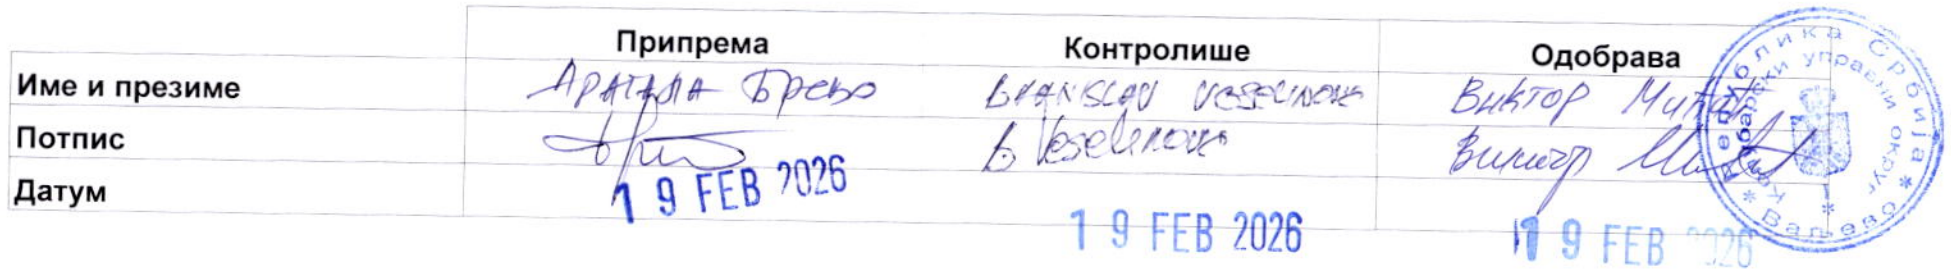 Припрема Контролише Одобрава
Име и презиме BRANISLAV VESELINOVIĆ Виктор
Потпис B Veselinović Виктор
Датум 19 FEB 2026 19 FEB 2026 19 FEB 2026
Република Србија
Колубарски управни округ
Ваљево